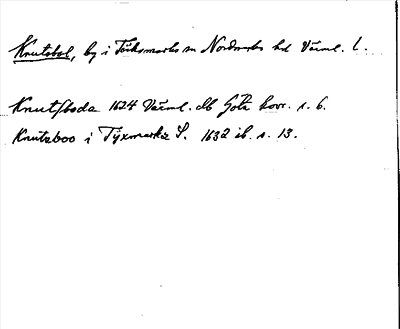 Knutsbol, by i Töcksmarks sn Nordmarks hd Värml. l.
Knutsboda 1624 Värml. db Göta hovr. s. 6.
Knutzboo i Tÿxmarkz S. 1632 ib. s. 13.